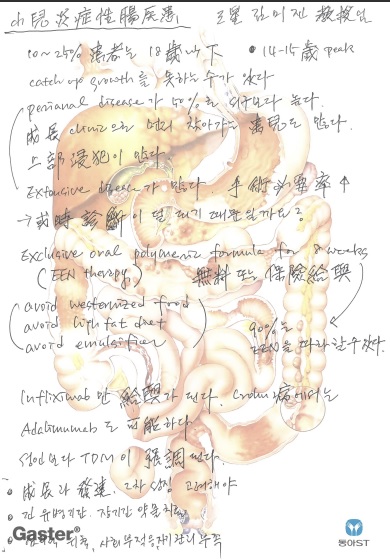 小兒 炎症性腸疾患
20~25% 患者는 18歲以下 • 14-15歲 peak
catch up growth를 못하는 수가 있다
perianal disease가 50%로 서구보다 높다.
成長 clinic으로 먼저 찾아가는 患兒도 많다.
上部侵犯이 많다.
Extensive disease가 많다. 手術必要率 ↑
Exclusive oral polymeric formula for 8 weeks
(EEN therapy) 無料 또는 保險給與
avoid westernized food
avoid high fat diet
avoid emulsifier
90%는
EEN을 따라할 수 있다.
Infliximab만 給與가 된다. Crohn病에서는
Adalimumab도 可能하다.
성인보다 TDM이 強調된다.
• 成長과 發達, 2차 성징 고려해야
• 긴 유병기간. 장기간 약물치료
Gaster®
동아ST